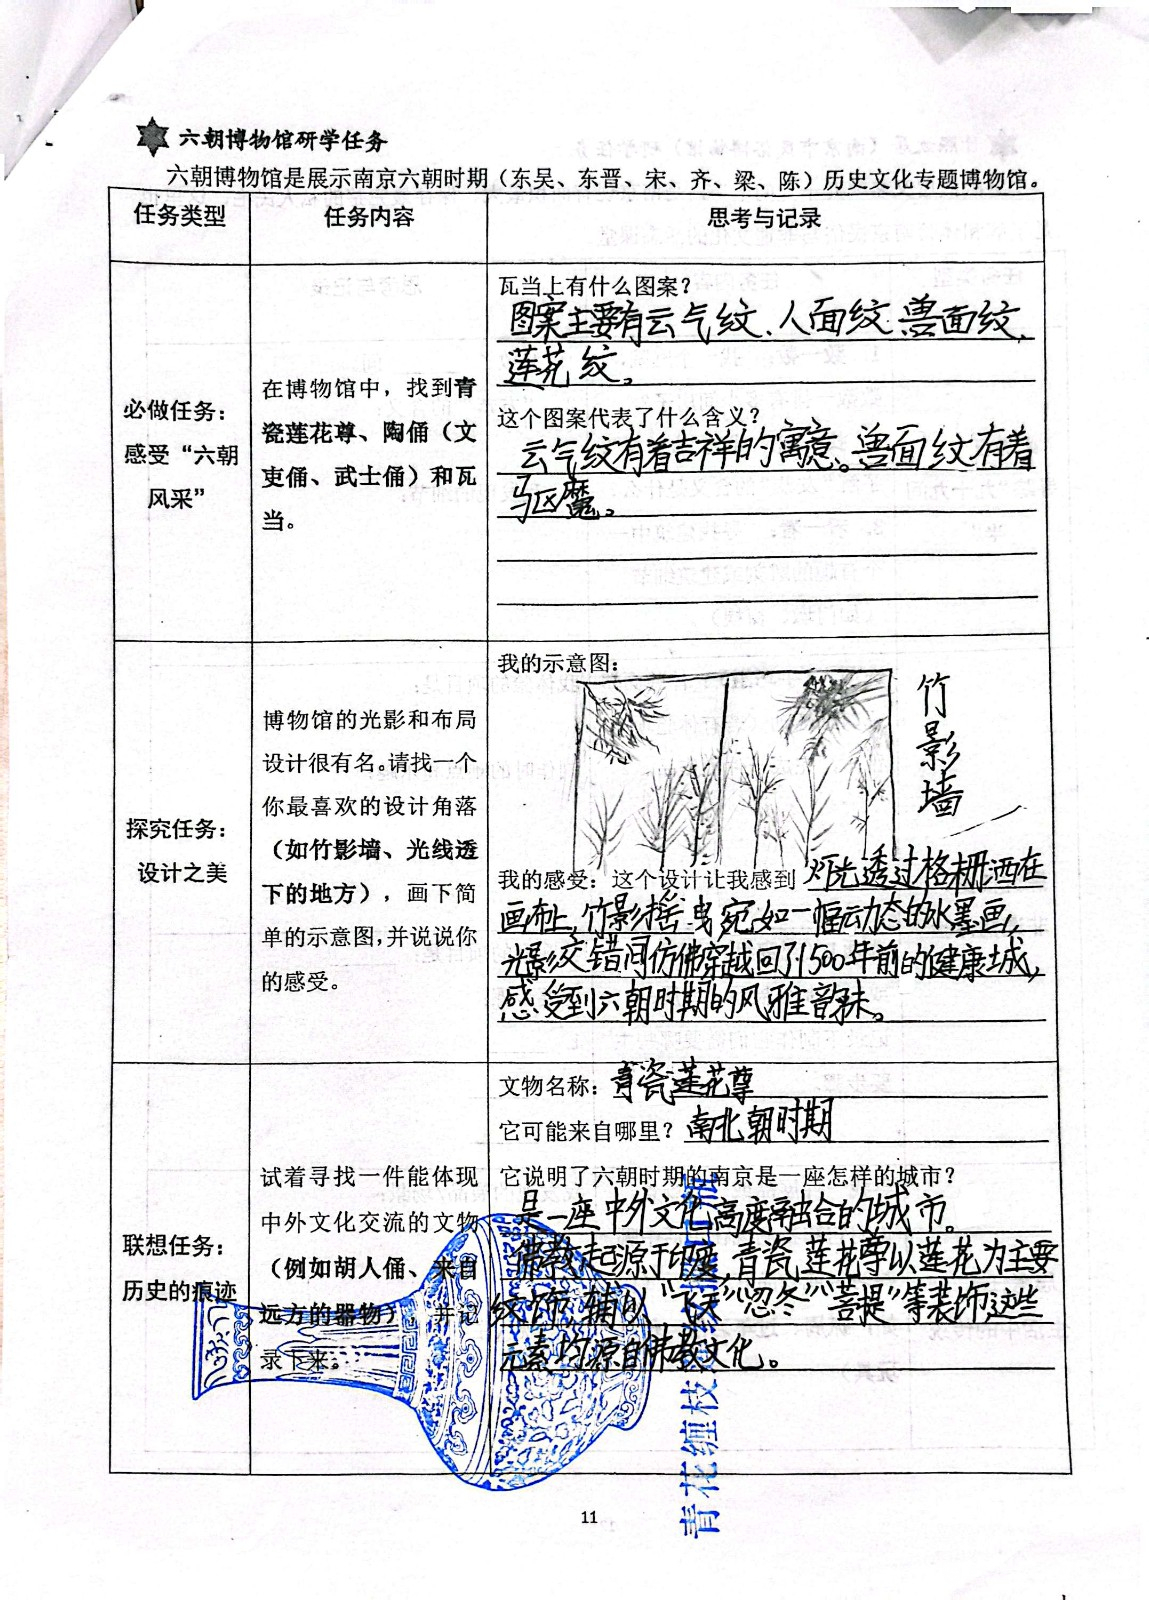 六朝博物馆研学任务
六朝博物馆是展示南京六朝时期（东吴、东晋、宋、齐、梁、陈）历史文化专题博物馆。
任务类型
任务内容
思考与记录
必做任务：
感受“六朝
风采”
在博物馆中，找到青
瓷莲花尊、陶俑（文
吏俑、武士俑）和瓦
当。
瓦当上有什么图案？
图案主要有云气纹、人面纹、兽面纹、
莲花纹。
这个图案代表了什么含义？
云气纹有着吉祥的寓意。兽面纹有着
驱魔。
探究任务：
设计之美
博物馆的光影和布局
设计很有名。请找一个
你最喜欢的设计角落
（如竹影墙、光线透
下的地方），画下简
单的示意图，并说说你
的感受。
我的示意图：
竹影墙
我的感受：这个设计让我感到 灯光透过格栅洒在
画布上，竹影摇曳宛如一幅动态的水墨画，
光影交错间仿佛穿越回了1500年前的健康城，
感受到六朝时期的风雅韵味。
联想任务：
历史的痕迹
试着寻找一件能体现
中外文化交流的文物
（例如胡人俑、来自
远方的器物），并记
录下来。
文物名称：青瓷莲花尊
它可能来自哪里？南北朝时期
它说明了六朝时期的南京是一座怎样的城市？
是一座中外文化高度融合的城市。
佛教起源于印度，青瓷莲花尊以莲花为主要
纹饰，辅以“飞天”“忍冬”“菩提”等装饰这些
元素均源自佛教文化。
青花缠枝
11